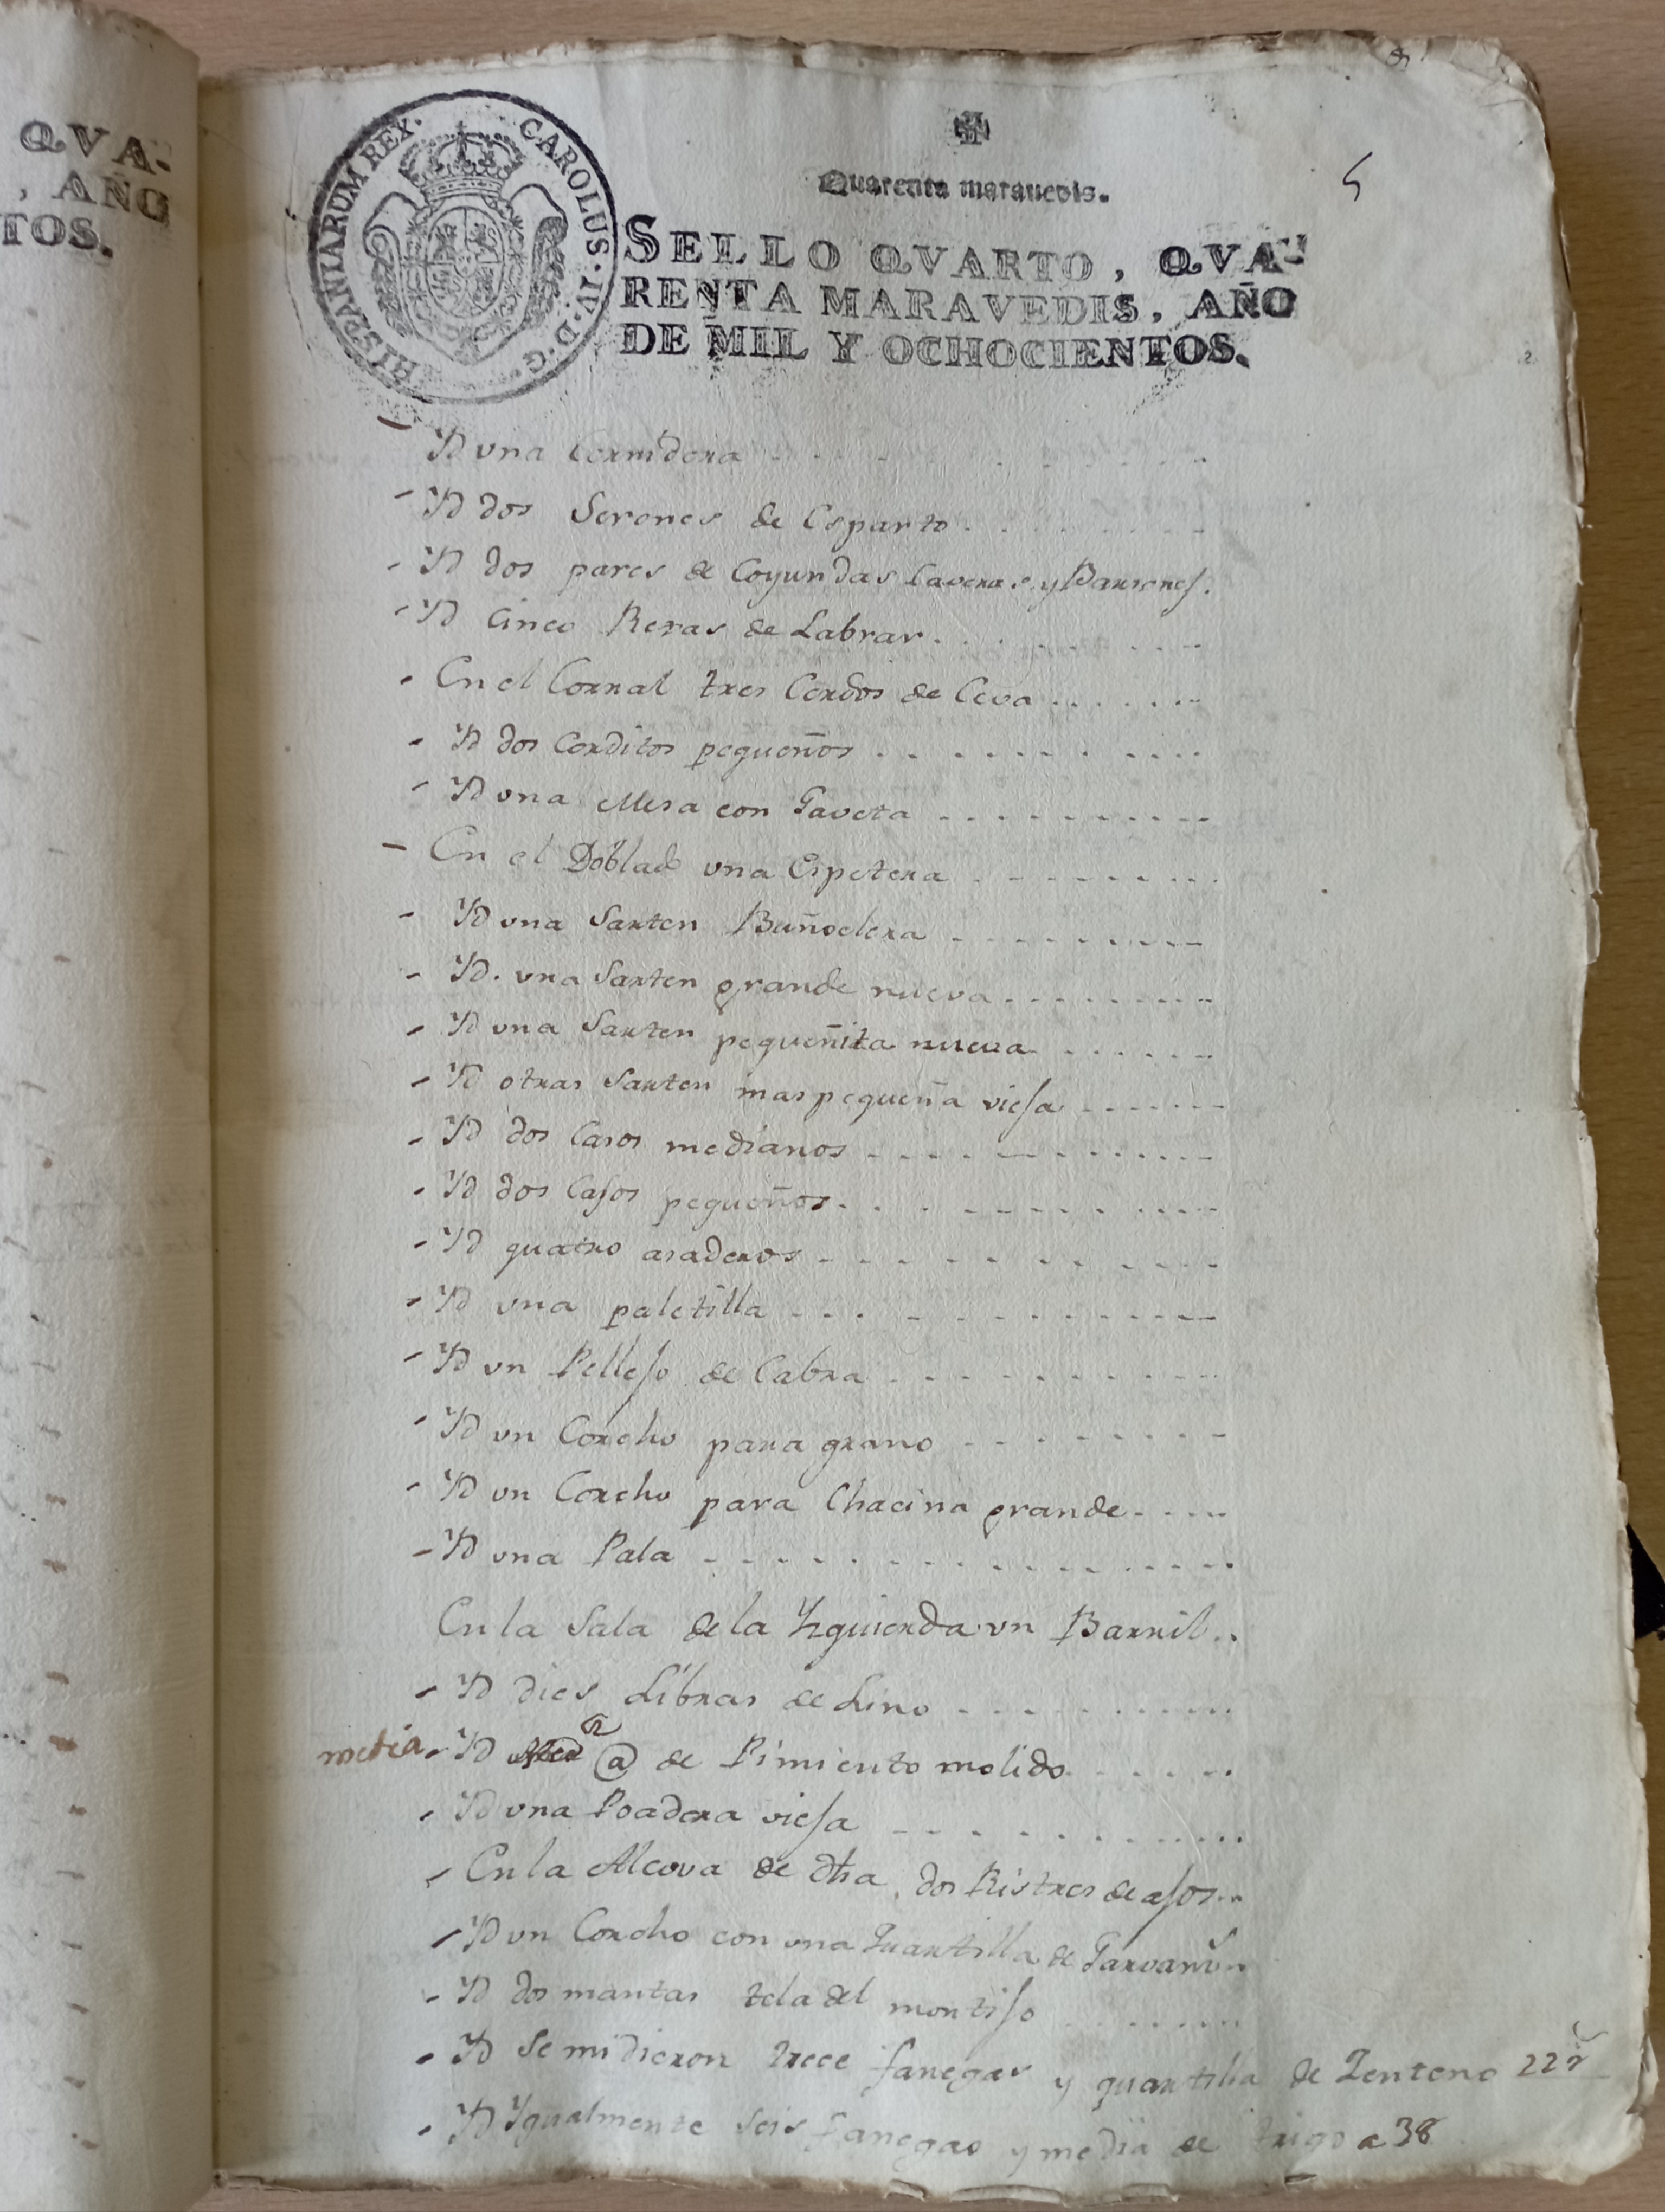 QVA-
, AÑO
TOS.
HISPANIARUM REX. CAROLUS. IV. D. G.
Quarenta marauedis.
5
SELLO QVARTO, QVA-
RENTA MARAVEDIS, AÑO
DE MIL Y OCHOCIENTOS.
Yd una Cernidera
Yd dos Serones de Esparto
Yd dos pares de Coyundas y Barsones.
Yd Cinco Rexas de Labrar
En el Corral tres Cerdos de Ceva
Yd dos Cerditos pequeños
Yd una Mesa con Gaveta
En el Doblado una Espetera
Yd una Sarten Buñoelera
Yd. una Sarten grande nueva
Yd una Sarten pequeñita nueva
Yd otras Sarten mas pequeña viefa
Yd dos Casos medianos
Yd dos Cafos pequeños
Yd quatro asaderos
Yd una paletilla
Yd un Pellefo de Cabra
Yd un Corcho para grano
Yd un Corcho para Chacina grande
Yd una Pala
En la Sala de la Yzquierda un Barril
Yd dies Libras de Lino
media Yd @ de Pimiento molido
Yd una Poadera viefa
En la Alcova de dha dos Ristres de afos
Yd un Corcho con una Quartilla de Garvanz.
Yd dos mantas tela del montifo
Yd Se midieron trece fanegas y quartilla de Zenteno 22 r
Yd Ygualmente seis fanegas y media de trigo a 38